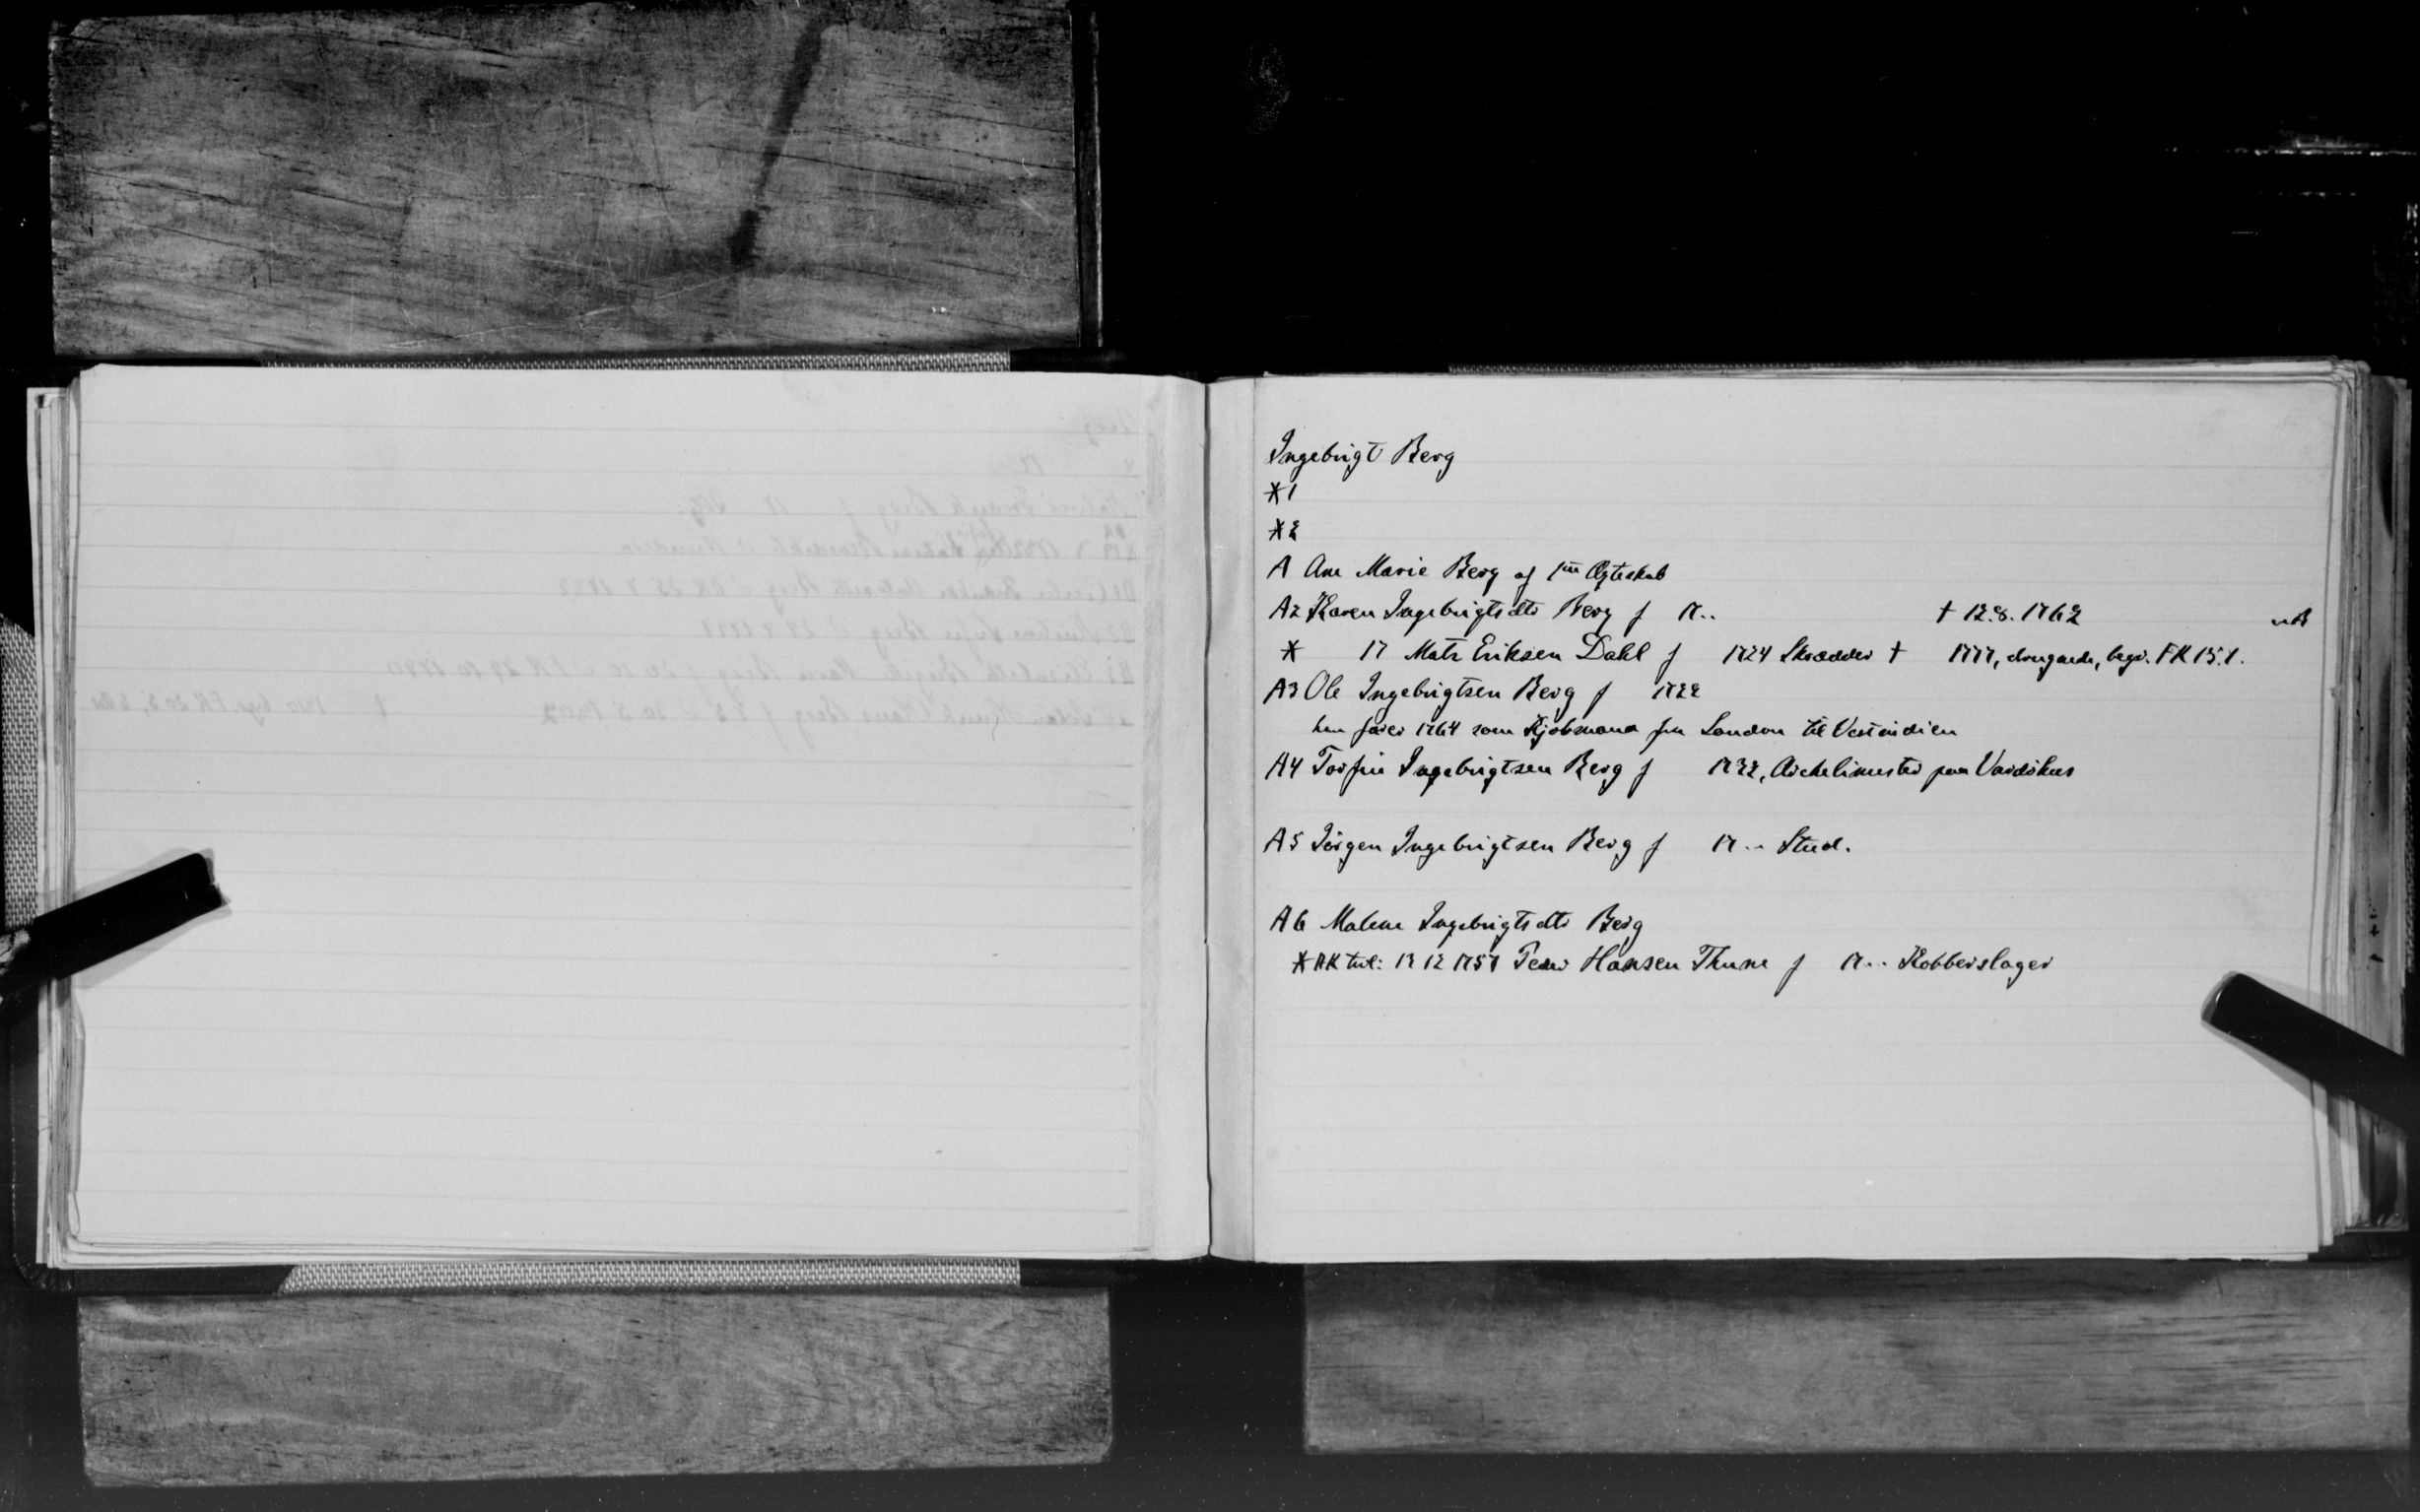 Ingebrigt Berg
*1
*2
A Ane Marie Berg af 1ste Ægteskab
A2 Karen Ingebrigtsdtr Berg f 17.. † 12.8.1762 uB
* 17 Mats Eriksen Dahl f 1724 Skrædder † 1777, begr. FK 15.1.
A3 Ole Ingebrigtsen Berg f 1722
han farer 1764 som Kjøbmand fra London til Vestindien
A4 Torfin Ingebrigtsen Berg f 1732, Arckelimester paa Vardöhus
A5 Jörgen Ingebrigtsen Berg f 17.. Stud.
A6 Malene Ingebrigtsdtr Berg
* NK trol: 13 12 1757 Peder Hansen Thune f 17.. Kobberslager